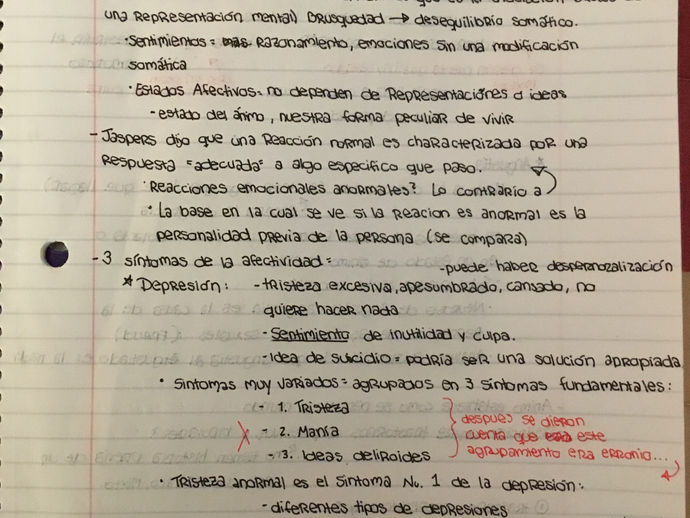 una representación mental) Brusquedad → desequilibrio somático.
• Sentimientos = mas razonamiento, emociones sin una modificación
somática
• Estados Afectivos = no dependen de representaciones o ideas
- estado del ánimo, nuestra forma peculiar de vivir
- Jaspers dijo que una reacción normal es characterizada por una
respuesta "adecuada" a algo especifico que paso.
• Reacciones emocionales anormales? Lo contrario a
• La base en la cual se ve si la reacion es anormal es la
personalidad previa de la persona (se compara)
- 3 síntomas de la afectividad =
- puede haber despernozalización
* Depresión: - tristeza excesiva, apesumbrado, cansado, no
quiere hacer nada
- Sentimiento de inutilidad y culpa.
- Idea de suicidio = podría ser una solución apropiada
• Sintomas muy variados = agrupados en 3 sintomas fundamentales:
- 1. Tristeza
- 2. Manía
- 3. Ideas deliroides
despues se dieron
cuenta que este
agrupamiento era erronio...
• Tristeza anormal es el sintoma No. 1 de la depresión:
- diferentes tipos de depresiones